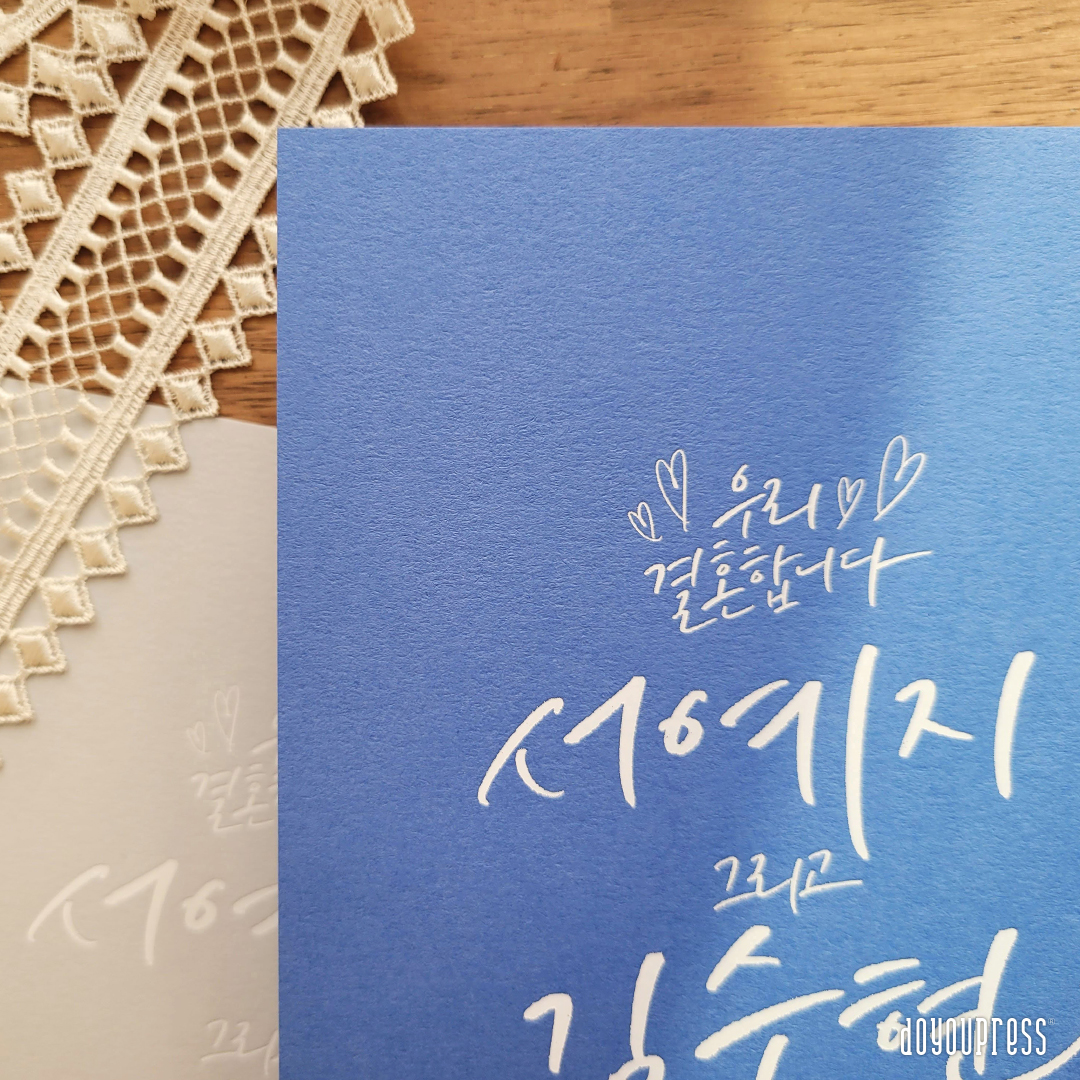 우리
결혼합니다
서예지
그리고
김수현
결혼
서예
그리
doyoupress